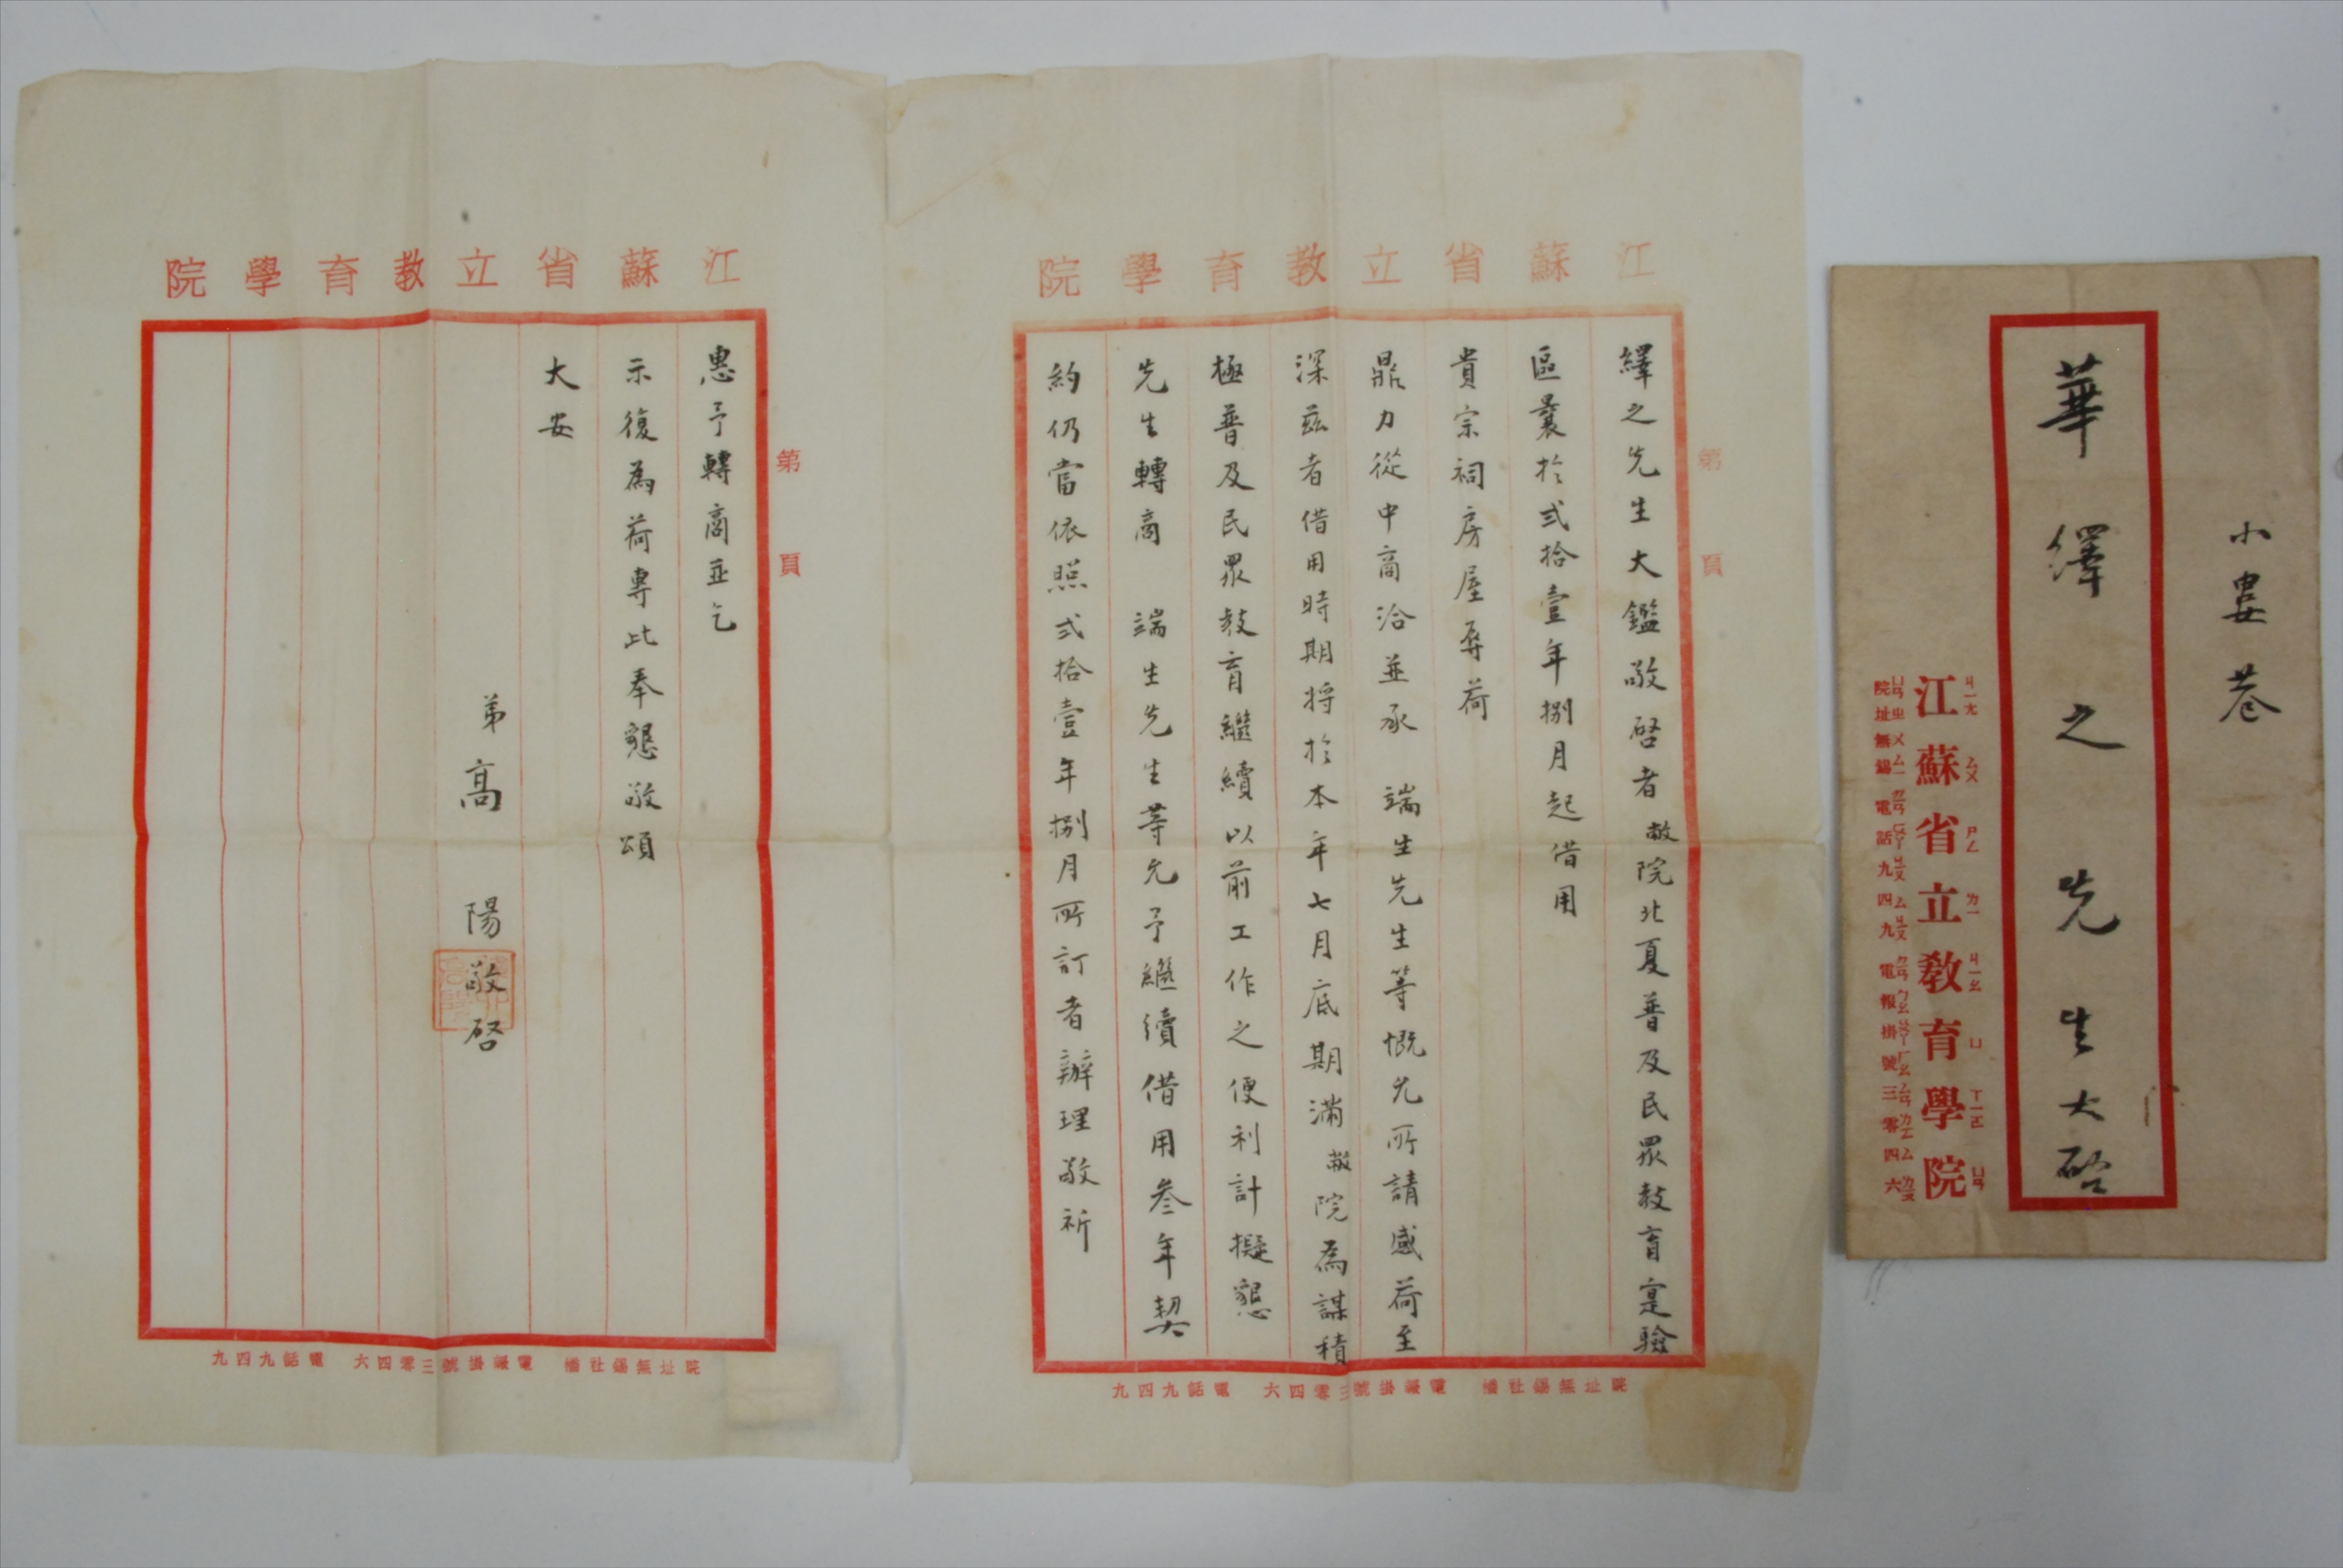 小婁巷
華繹之先生大啓
江蘇省立教育學院
ㄐㄧㄤ ㄙㄨ ㄕㄥ ㄌㄧ ㄐㄧㄠ ㄩ ㄒㄩㄝ ㄩㄢ
院址無錫 電話九四九 電報掛號三零四六
江蘇省立教育學院
第 頁
繹之先生大鑑敬啓者敝院北夏普及民眾教育寔驗
區曩於弍拾壹年捌月起借用
貴宗祠房屋辱荷
鼎力從中商洽並承 端生先生等慨允所請感荷至
深茲者借用時期將於本年七月底期滿敝院為謀積
極普及民眾教育繼續以前工作之便利計擬懇
先生轉商 端生先生等允予繼續借用叁年契
約仍當依照弍拾壹年捌月所訂者辦理敬祈
院址無錫社橋 電報掛號三零四六 電話九四九
江蘇省立教育學院
第 頁
惠予轉商並乞
示復為荷專此奉懇敬頌
大安
弟高 陽敬啓
院址無錫社橋 電報掛號三零四六 電話九四九